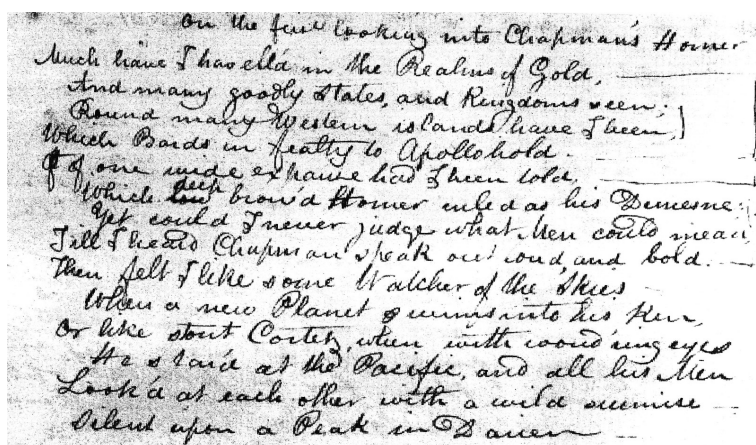 On the first looking into Chapman's Homer
Much have I travell'd in the Realms of Gold,
And many goodly States, and Kingdoms seen;
Round many Western islands have I been,
Which Bards in fealty to Apollo hold.
Of one wide expanse had I been told,
Which low deep brow'd Homer ruled as his Demesne:
Yet could I never judge what Men could mean
Till I heard Chapman speak out loud, and bold.
Then felt I like some Watcher of the Skies
When a new Planet swims into his Ken,
Or like stout Cortez, when with wond'ring eyes
He star'd at the Pacific, and all his Men
Look'd at each other with a wild surmise
Silent upon a Peak in Darien